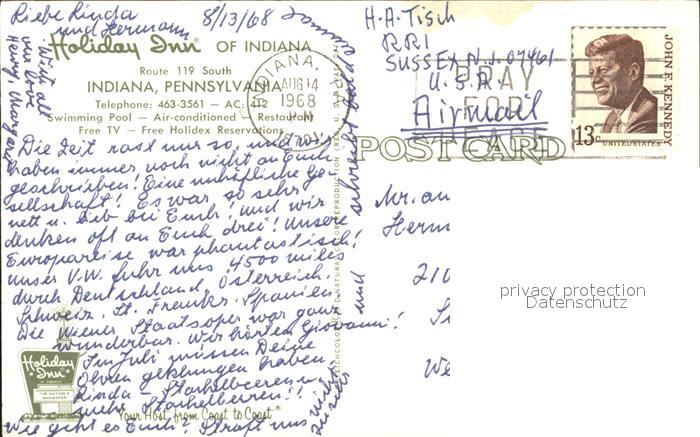 Liebe Linda
und Hermann
8/13/68
Holiday Inn® OF INDIANA
Route 119 South
INDIANA, PENNSYLVANIA
Telephone: 463-3561 — AC: 412
Swimming Pool — Air-conditioned — Restaurant
Free TV — Free Holidex Reservations
Die Zeit rast nur so, und wir
haben immer noch nicht an Euch
geschrieben! Eine unhöfliche Ge
sellschaft! Es war so sehr
nett u. lieb bei Euch! und wir
denken oft an Euch drei! Unsere
Europareise war phantastisch!
unser V.W. fuhr uns 4500 miles
durch Deutschland, Österreich,
Schweiz, Lt. Frankr. Spanien
Die Wiener Staatsoper war ganz
wunderbar. Wir hörten Giovanni!
Im Juli müssen Deine
Ohren geklungen haben
Linda - Stachelbeeren u.
mehr Stachelbeeren!!
Wie geht es Euch? Straft uns
nicht
und schreibt bald
Holiday Inn
THE NATION'S INNKEEPER
"Your Host from Coast to Coast"®
H. A. Tisch
RR1
SUSSEX N.J. 07461
U.S.A.
Airmail
INDIANA,
AUG 14
1968
PM
PRAY
FOR
POST CARD
JOHN F. KENNEDY
13c
UNITED STATES
Mr. an
Herm
210
We
privacy protection
Datenschutz